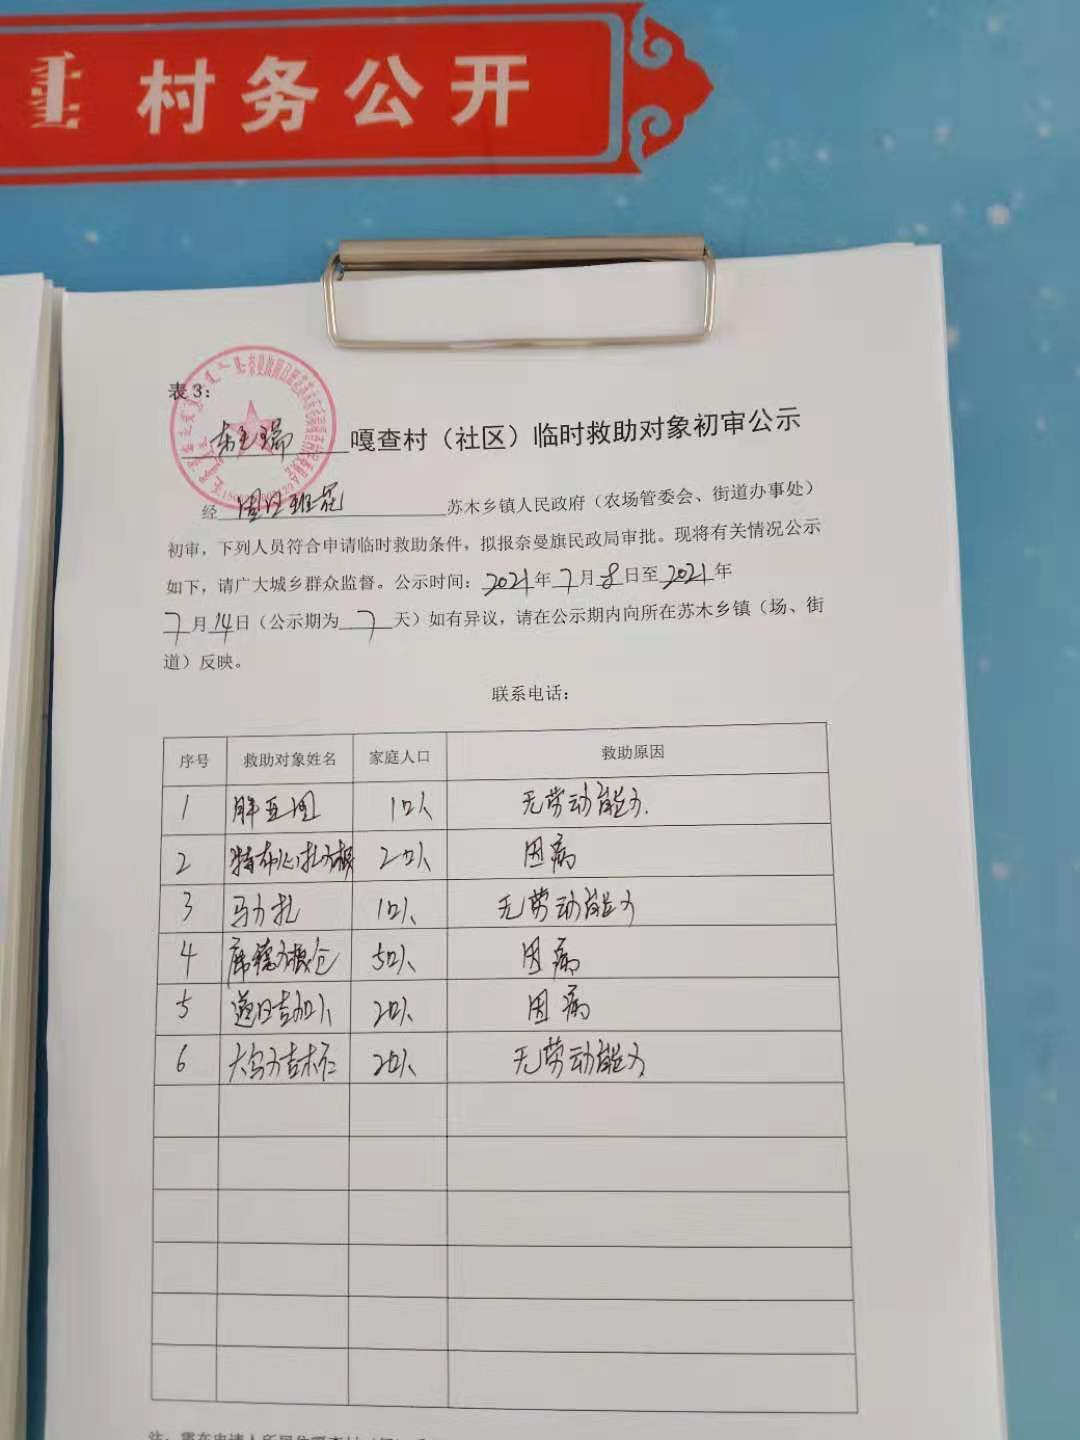 村务公开
表3：
东毛瑞嘎查村（社区）临时救助对象初审公示
经固日班花苏木乡镇人民政府（农场管委会、街道办事处）
初审，下列人员符合申请临时救助条件，拟报奈曼旗民政局审批。现将有关情况公示
如下，请广大城乡群众监督。公示时间：2021年7月8日至2021年
7月14日（公示期为7天）如有异议，请在公示期内向所在苏木乡镇（场、街
道）反映。
联系电话：
序号 救助对象姓名 家庭人口 救助原因
1 1口人 无劳动能力.
2 2口人 因病
3 马力扎 1口人 无劳动能力
4 5口人 因病
5 道日吉 2口人 因病
6 2口人 无劳动能力